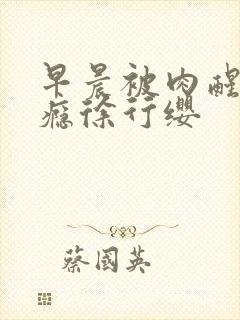 早晨被肉醒
瘾徐行缨
蔡国英